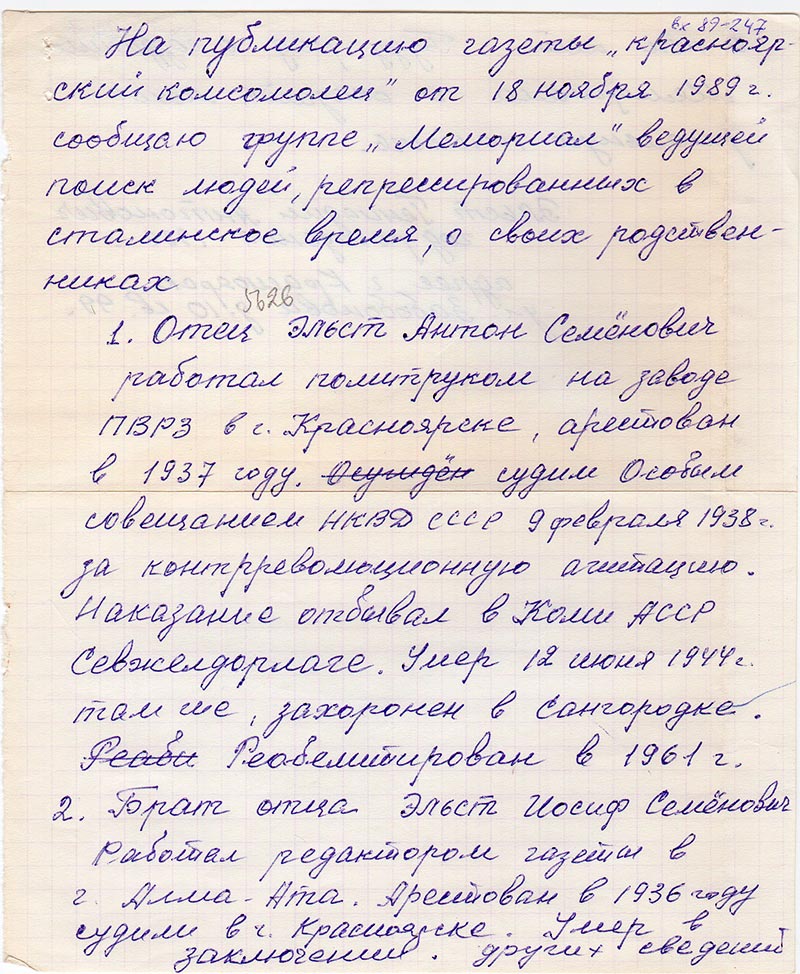 вх 89-247
На публикацию газеты „Краснояр-
ский комсомолец" от 18 ноября 1989 г.
сообщаю группе „Мемориал" ведущей
поиск людей, репрессированных в
сталинское время, о своих родствен-
никах
5626
1. Отец Эльст Антон Семёнович
работал политруком на заводе
ПВРЗ в г. Красноярске, арестован
в 1937 году. Осуждён судим Особым
совещанием НКВД СССР 9 февраля 1938 г.
за контрреволюционную агитацию.
Наказание отбывал в Коми АССР
Севжелдорлаге. Умер 12 июня 1944 г.
там же, захоронен в Сангородке.
Реаби Реабелитирован в 1961 г.
2. Брат отца Эльст Иосиф Семёнович
Работал редактором газеты в
г. Алма-Ата. Арестован в 1936 году
судили в г. Красноярске. Умер в
заключении. других сведений